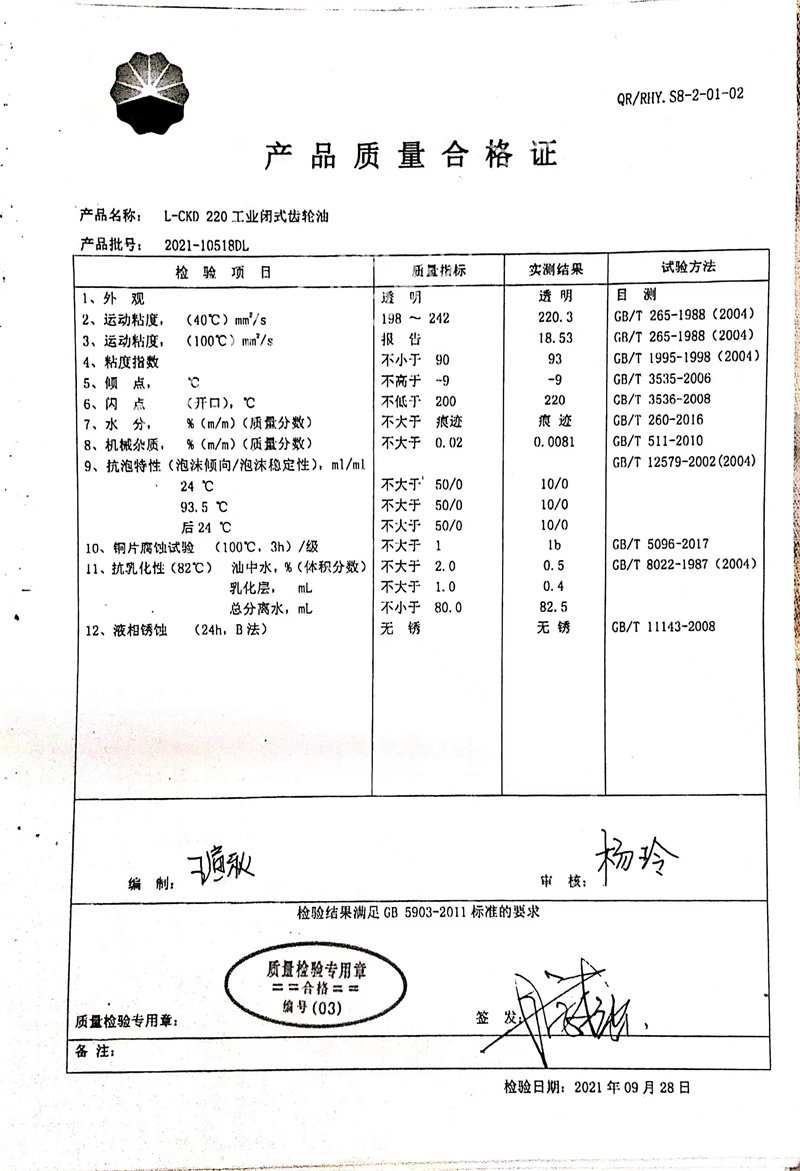 QR/RHY.S8-2-01-02
产品质量合格证
产品名称： L-CKD 220工业闭式齿轮油
产品批号： 2021-10518DL
检验项目 质量指标 实测结果 试验方法
1、外 观 透 明 透 明 目 测
2、运动粘度，（40℃）mm²/s 198 ～ 242 220.3 GB/T 265-1988（2004）
3、运动粘度，（100℃）mm²/s 报 告 18.53 GB/T 265-1988（2004）
4、粘度指数 不小于 90 93 GB/T 1995-1998（2004）
5、倾 点， ℃ 不高于 -9 -9 GB/T 3535-2006
6、闪 点 （开口），℃ 不低于 200 220 GB/T 3536-2008
7、水 分， %（m/m）（质量分数） 不大于 痕迹 痕 迹 GB/T 260-2016
8、机械杂质， %（m/m）（质量分数） 不大于 0.02 0.0081 GB/T 511-2010
9、抗泡特性（泡沫倾向/泡沫稳定性），ml/ml GB/T 12579-2002(2004)
24 ℃ 不大于 50/0 10/0
93.5 ℃ 不大于 50/0 10/0
后24 ℃ 不大于 50/0 10/0
10、铜片腐蚀试验 （100℃，3h）/级 不大于 1 1b GB/T 5096-2017
11、抗乳化性（82℃） 油中水，%（体积分数） 不大于 2.0 0.5 GB/T 8022-1987（2004）
乳化层， mL 不大于 1.0 0.4
总分离水，mL 不小于 80.0 82.5
12、液相锈蚀 （24h，B法） 无 锈 无 锈 GB/T 11143-2008
编 制： 审 核： 杨玲
检验结果满足GB 5903-2011标准的要求
质量检验专用章
＝＝合格＝＝
编号(03)
质量检验专用章： 签 发：
备 注：
检验日期：2021年09月28日